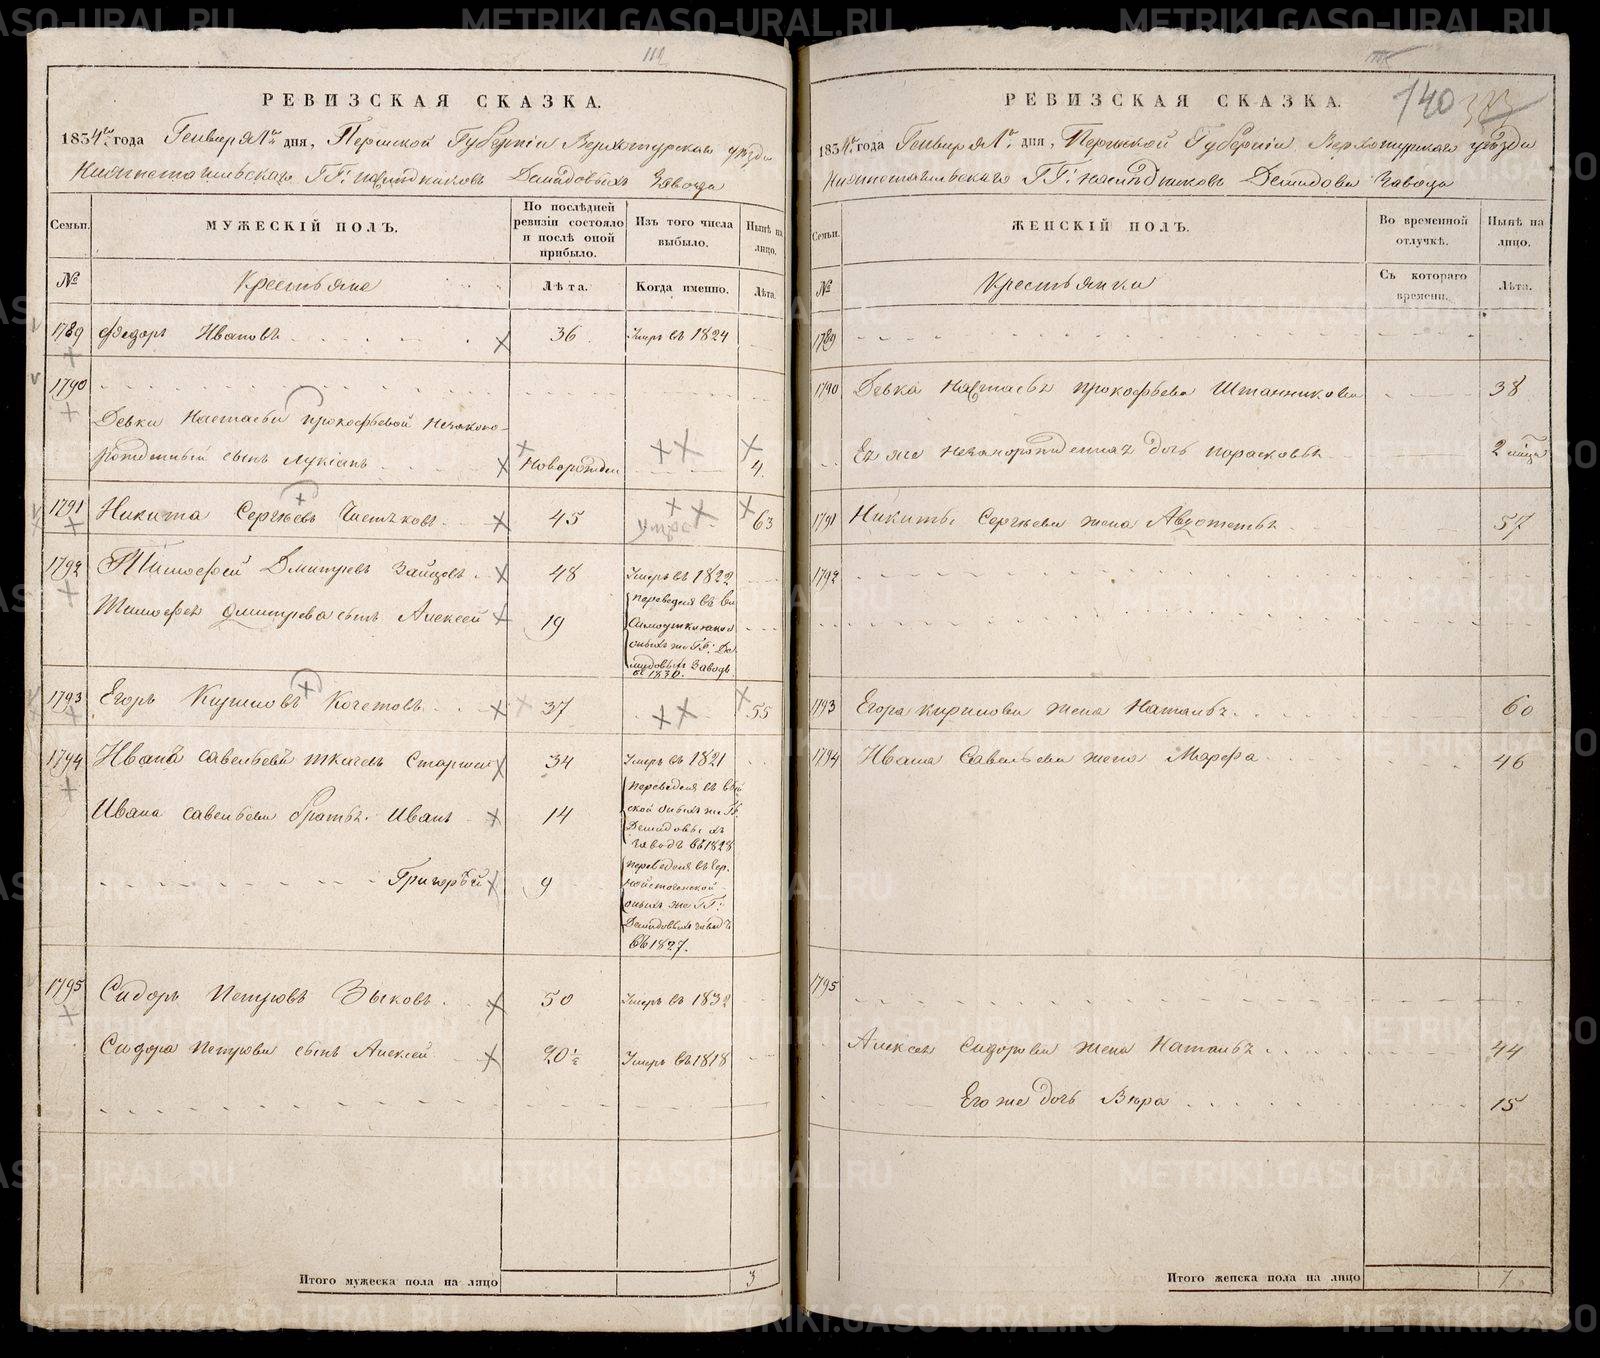 111
РЕВИЗСКАЯ СКАЗКА.
1834го года Генваря 1го дня, Пермской Губернiи Верхотурскаго уѣзда
Нижнетагильскаго ГГ: наслѣдниковъ Демидовыхъ Завода
Семьи. МУЖЕСКIЙ ПОЛЪ. По послѣдней ревизiи состояло и послѣ оной прибыло. Изъ того числа выбыло. Нынѣ на лицо.
№ Крестьяне Лѣта. Когда именно. Лѣта.
1789 Федоръ Ивановъ 36 Умеръ въ 1824
1790
Девки Настасьи Прокофьевой Незаконо-
рожденный сынъ Лукiанъ Новорожден 4.
1791 Никита Сергѣевъ Чистѣковъ 45 умре 63
1792 Тимофей Дмитрiевъ Зайцовъ 48 Умеръ въ 1822
Тимофея Дмитрева сынъ Алексей 19 переведенъ въ
оныхъ же ГГ: Де-
мидовыхъ Заводъ
въ 1830.
1793 Егоръ Кириловъ Кочетовъ 37 55
1794 Иванъ Савельевъ Ткачевъ Старшей 34 Умеръ въ 1821
Ивана Савельева братья. Иванъ 14 переведенъ въ
ской оныхъ же ГГ.
Демидовыхъ
заводъ въ 1828
Григорѣй 9 переведенъ въ Чер-
ноисточенской
оныхъ же ГГ:
Демидовыхъ заводъ
въ 1827.
1795 Сидоръ Петровъ Зыковъ 50 Умеръ въ 1832
Сидора Петрова сынъ Алексей 20 ½ Умеръ въ 1818
Итого мужеска пола на лицо 3
140
РЕВИЗСКАЯ СКАЗКА.
1834го года Генваря 1го дня, Пермской Губернiи Верхотурскаго уѣзда
Нижнетагильскаго ГГ: наслѣдниковъ Демидовы Завода
Семьи. ЖЕНСКIЙ ПОЛЪ. Во временной отлучкѣ. Нынѣ на лицо.
№ Крестьянки Съ котораго времени. Лѣта.
1789
1790 Девка Настасья Прокофьева Штанникова 38
Ея же незаконорожденная дочь Парасковья 2 мѣсяца
1791 Никиты Сергѣева жена Авдотья 57
1792
1793 Егора Кирилова жена Наталья 60
1794 Ивана Савельева жена Марфа 46
1795
Алексея Сидорова жена Наталья 44
Его же дочь Вѣра 15
Итого женска пола на лицо 7
METRIKI.GASO-URAL.RU